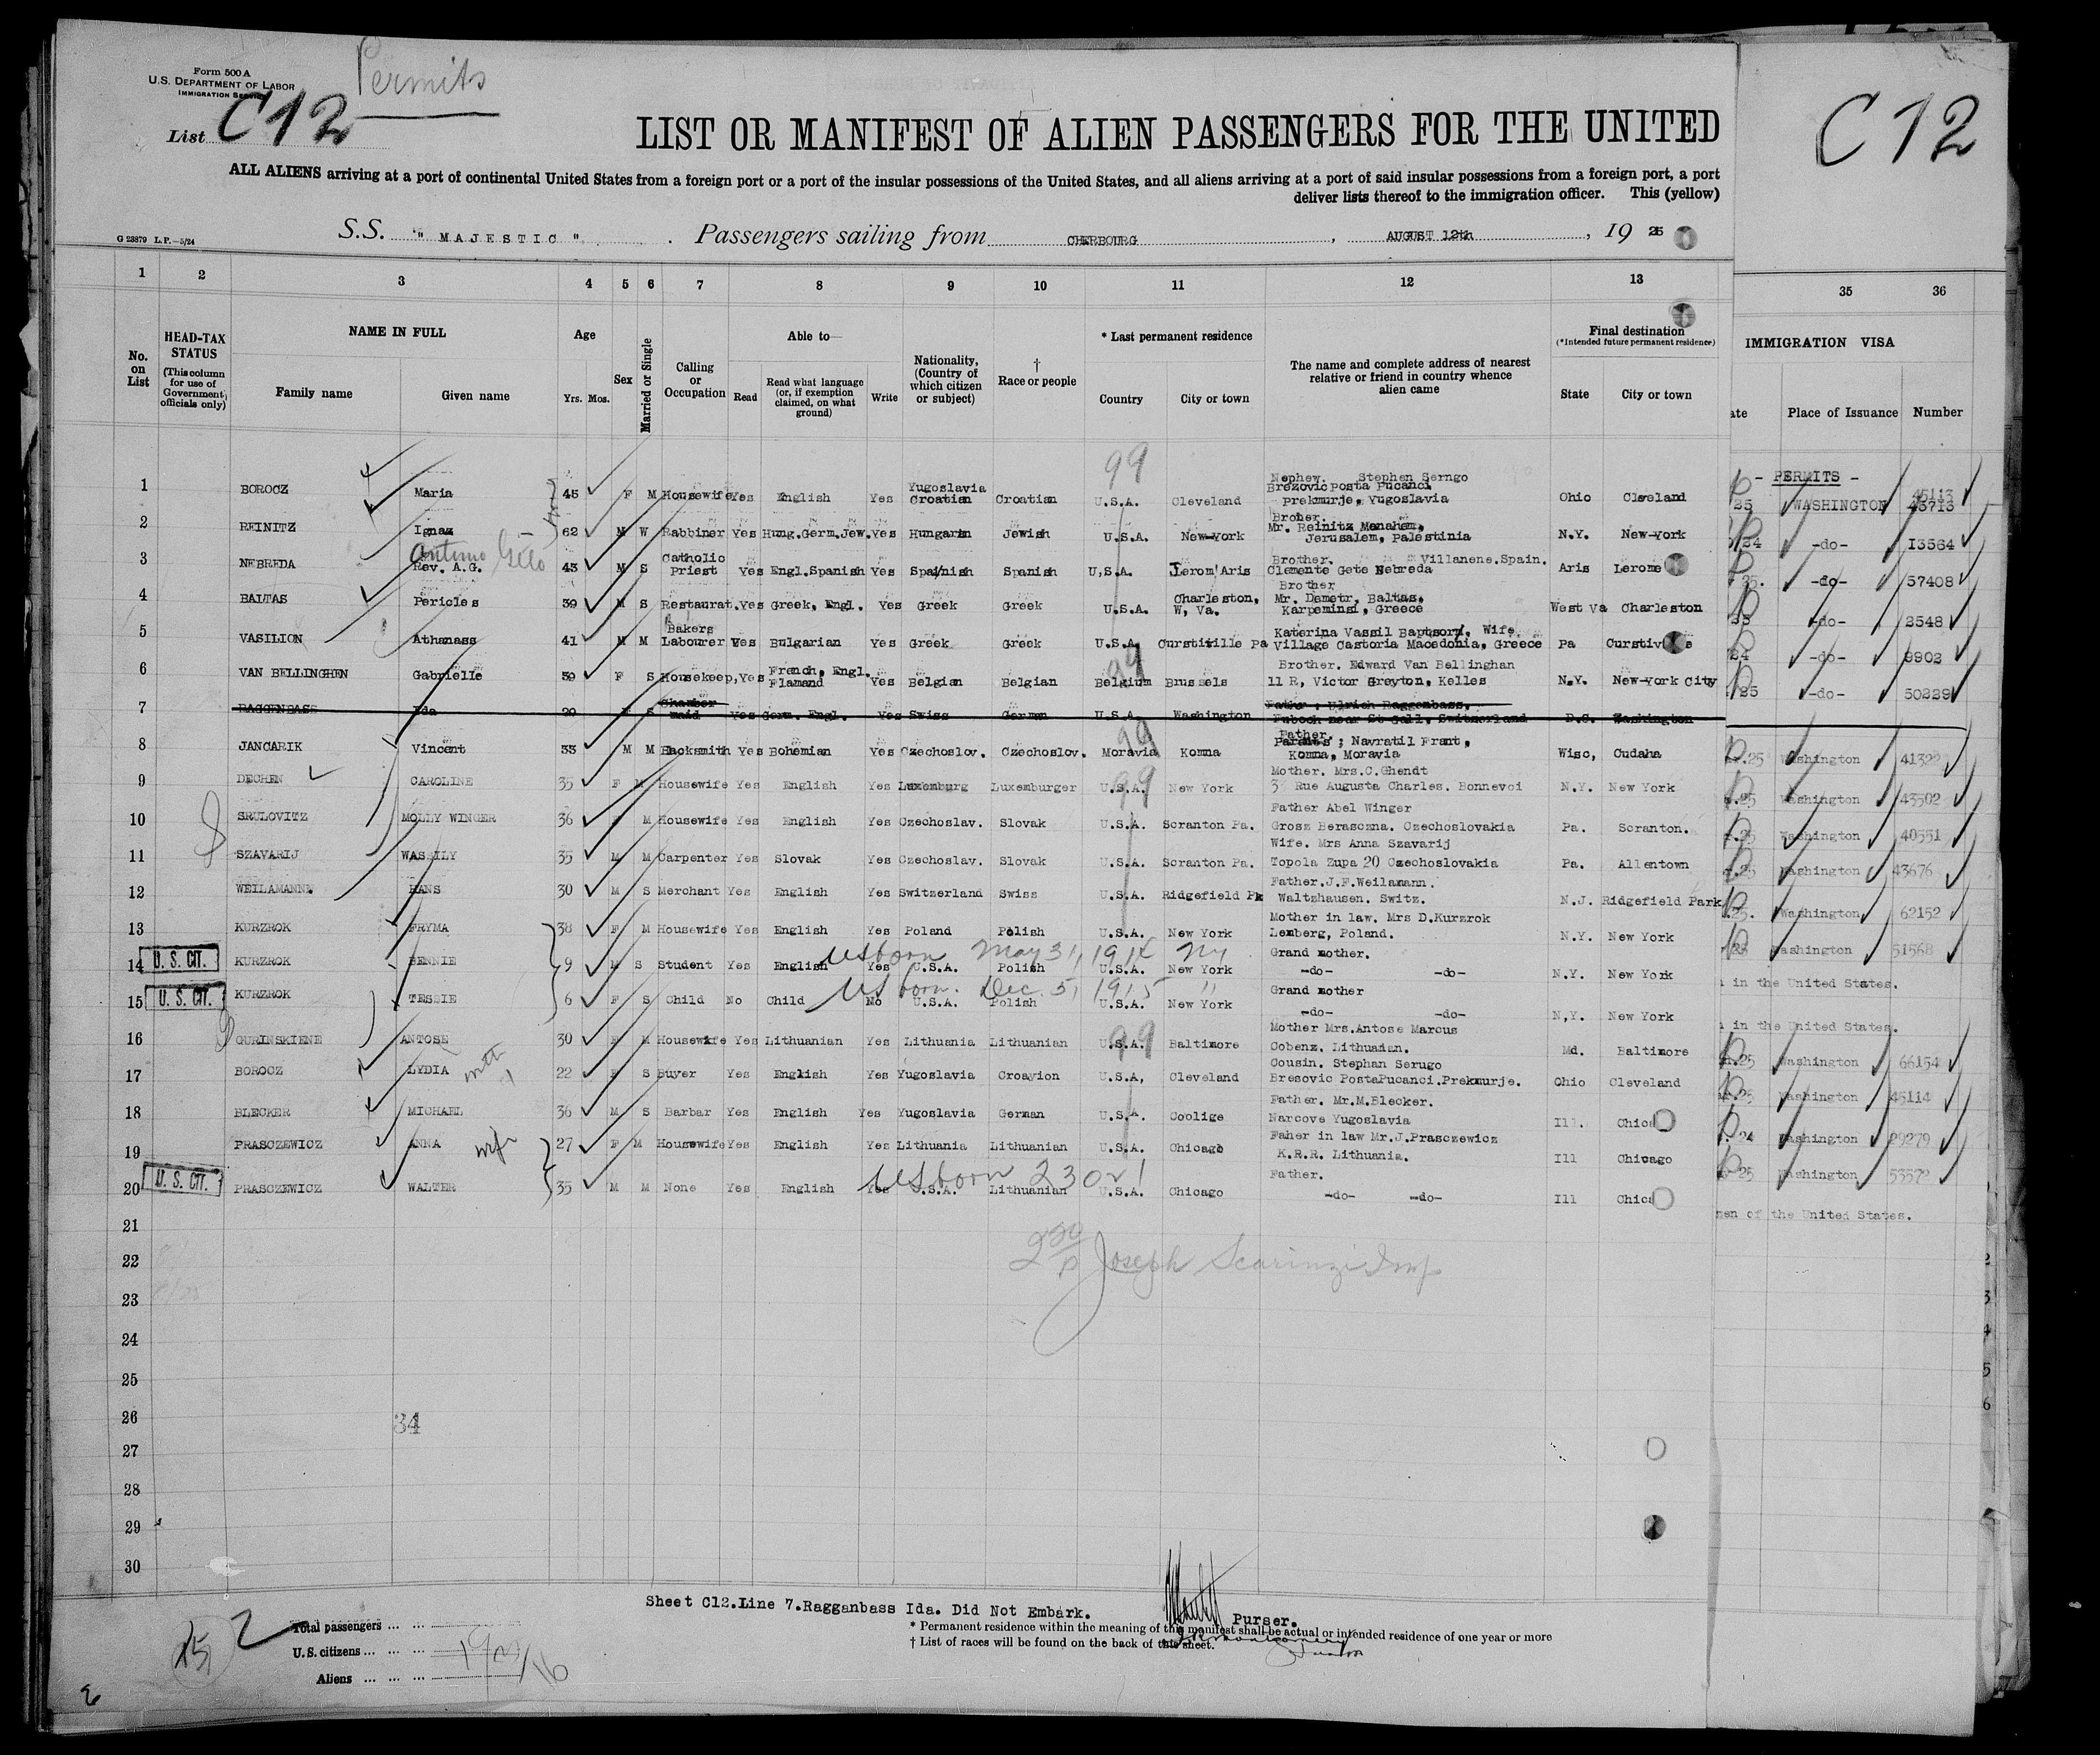 Form 500 A
U.S. DEPARTMENT OF LABOR
IMMIGRATION SERVICE
Permits
List C12
C 12
LIST OR MANIFEST OF ALIEN PASSENGERS FOR THE UNITED
ALL ALIENS arriving at a port of continental United States from a foreign port or a port of the insular possessions of the United States, and all aliens arriving at a port of said insular possessions from a foreign port, a port
deliver lists thereof to the immigration officer. This (yellow)
G 23879 L.P.—5/24
S.S. "MAJESTIC". Passengers sailing from CHERBOURG, AUGUST 12th, 1925
1 2 3 4 5 6 7 8 9 10 11 12 13 35 36
No. on List
HEAD-TAX STATUS (This column for use of Government officials only)
NAME IN FULL
Family name Given name
Age Yrs. Mos.
Sex
Married or Single
Calling or Occupation
Able to—
Read Read what language (or, if exemption claimed, on what ground) Write
Nationality, (Country of which citizen or subject)
† Race or people
* Last permanent residence
Country City or town
The name and complete address of nearest relative or friend in country whence alien came
Final destination (*Intended future permanent residence)
State City or town
IMMIGRATION VISA
ate Place of Issuance Number
- PERMITS -
1 BOROCZ Maria 45 F M Housewife Yes English Yes Yugoslavia Croatian Croatian U.S.A. Cleveland Nephew. Stephen Serngo Brezovic Posta Pucanci prekmurje, Yugoslavia Ohio Cleveland 25 WASHINGTON 45113
2 REINITZ Ignaz 62 M W Rabbiner Yes Hung.Germ.Jew. Yes Hungarin Jewish U.S.A. New-york Broher. Mr. Reinitz Menahem, Jerusalem, Palestinia N.Y. New-york 24 -do- 13564
3 NEBREDA Rev. A.G. 43 M S Catholic Priest Yes Engl.Spanish Yes Spainish Spanish U,S.A. Jerom'Aris Brother. Villanene.Spain. Clemente Gete Nebreda Aris Lerome 25. -do- 57408
4 BALTAS Pericles 39 M S Restaurat. Yes Greek, Engl. Yes Greek Greek U.S.A. Charleston, W, Va. Brother Mr. Demetr, Baltas, Karpeminsi, Greece West Va Charleston -do- 2548
5 VASILION Athanass 41 M M Bakers Labourer Yes Bulgarian Yes Greek Greek U.S.A. Curstitille Pa Katerina Vassil Baptsori, Wife. Village Castoria Macedonia, Greece Pa 24 -do- 9903
6 VAN BELLINGHEN Gabrielle 39 F S Housekeep, Yes French, Engl. Flamand Yes Belgian Belgian Belgium Brussels Brother. Edward Van Bellinghan 11 R, Victor Greyton, Kelles N.Y. New-york City 25 -do- 50229
7 RAGGENBASS Ida 29 F S Chamber maid Yes Germ. Engl. Yes Swiss German U.S.A. Washington Father : Ulrich Raggenbass, Switzerland D.C. Washington
8 JANCARIK Vincent 33 M M Blacksmith Yes Bohemian Yes Czechoslov. Czechoslov. Moravia Komna Father. Parents ; Navratil Frant, Komna, Moravia Wisc, Cudaha .25 Washington 41322
9 DECHEN CAROLINE 35 F M Housewife Yes English Yes Luxemburg Luxemburger U.S.A. New York Mother. Mrs.C.Ghendt 3 Rue Augusta Charles. Bonnevoi N.Y. New York .25 Washington 43502
10 SRULOVITZ MOLLY WINGER 36 F M Housewife Yes English Yes Czechoslav. Slovak U.S.A. Scranton Pa. Father Abel Winger Grosz Berascna. Czechoslovakia Pa. Scranton. .25 Washington 40551
11 SZAVARIJ WASSILY 35 M M Carpenter Yes Slovak Yes Czechoslav. Slovak U.S.A. Scranton Pa. Wife. Mrs Anna Szavarij Topola Zupa 20 Czechoslovakia Pa. Allentown .25 Washington 43676
12 WEILAMANN. HANS 30 M S Merchant Yes English Yes Switzerland Swiss U.S.A. Ridgefield Pk Father.J.F.Weilamann. Waltzhausen. Switz. N.J. Ridgefield Park .25. Washington 62152
13 KURZROK FRYMA 38 F M Housewife Yes English Yes Poland Polish U.S.A. New York Mother in law. Mrs D.Kurzrok Lemberg, Poland. N.Y. New York 25 Washington 51568
14 U. S. CIT. KURZROK BENNIE 9 M S Student Yes English Yes U.S.A. Polish U.S.A. New York Grand mother. -do- -do- N.Y. New York in the United States.
US born May 31, 1914 NY
15 U. S. CIT. KURZROK TESSIE 6 F S Child No Child No U.S.A. Polish U.S.A. New York Grand mother -do- -do- N,Y. New York in the United States.
US born. Dec. 5, 1915 "
16 GURINSKIENE ANTOSE 30 F M Housewife Yes Lithuanian Yes Lithuania Lithuanian U.S.A. Baltimore Mother Mrs.Antose Marcus Cobenz. Lithuanian. Md. Baltimore .25 Washington 66154
17 BOROCZ LYDIA 22 F S Buyer Yes English Yes Yugoslavia Croayion U.S.A, Cleveland Cousin. Stephan Serugo Bresovic PostaPucanci.Prekmurje. Ohio Cleveland .25 Washington 45114
18 BLECKER MICHAEL 36 M S Barbar Yes English Yes Yugoslavia German U.S.A. Coolige Father. Mr.M.Blecker. Narcove Yugoslavia Ill. 24 Washington 29279
19 PRASCZEWICZ ANNA wife 27 F M Housewife Yes English Yes Lithuania Lithuanian U.S.A. Chicago Faher in law Mr.J.Prasczewicz K.R.R. Lithuania. Ill Chivago 25 Washington 53572
20 U. S. CIT. PRASCZEWICZ WALTER 35 M M None Yes English Yes U.S.A. Lithuanian U.S.A. Chicago Father. -do- -do- Ill zen of the United States.
US born
21
22 Joseph Scarinzi Insp
23
24
25
26 34
27
28
29
30
Sheet C12.Line 7.Ragganbass Ida. Did Not Embark.
Purser.
Total passengers
U.S. citizens
Aliens
* Permanent residence within the meaning of this manifest shall be actual or intended residence of one year or more
† List of races will be found on the back of this sheet.